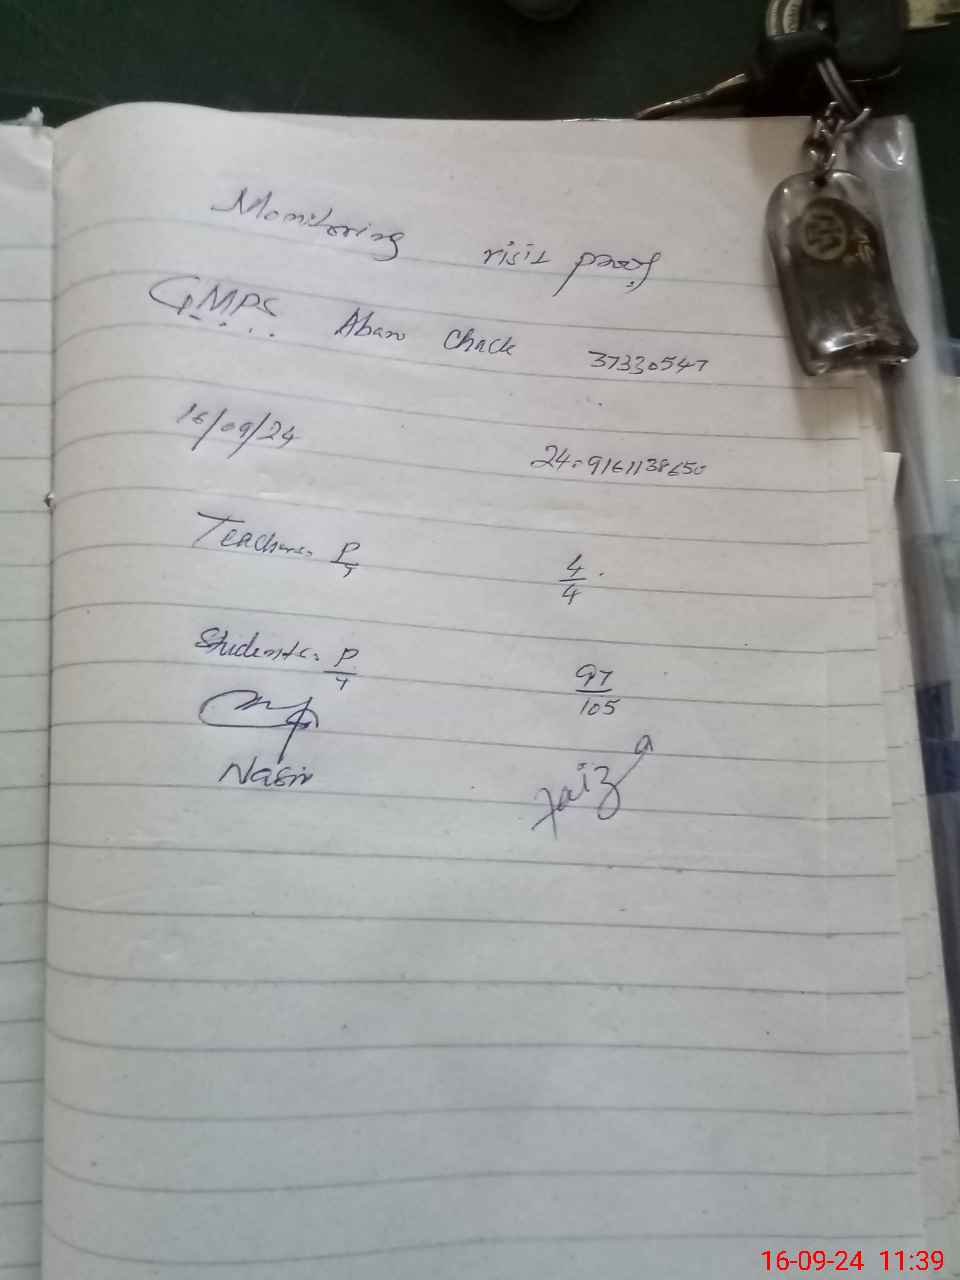 Monitoring visit proof
GMPS Aban Chack 37330547
16/09/24
24.9161138650
Teachers. P/T 4/4
Students. P/T 97/105
Nasir
Faiz
16-09-24 11:39